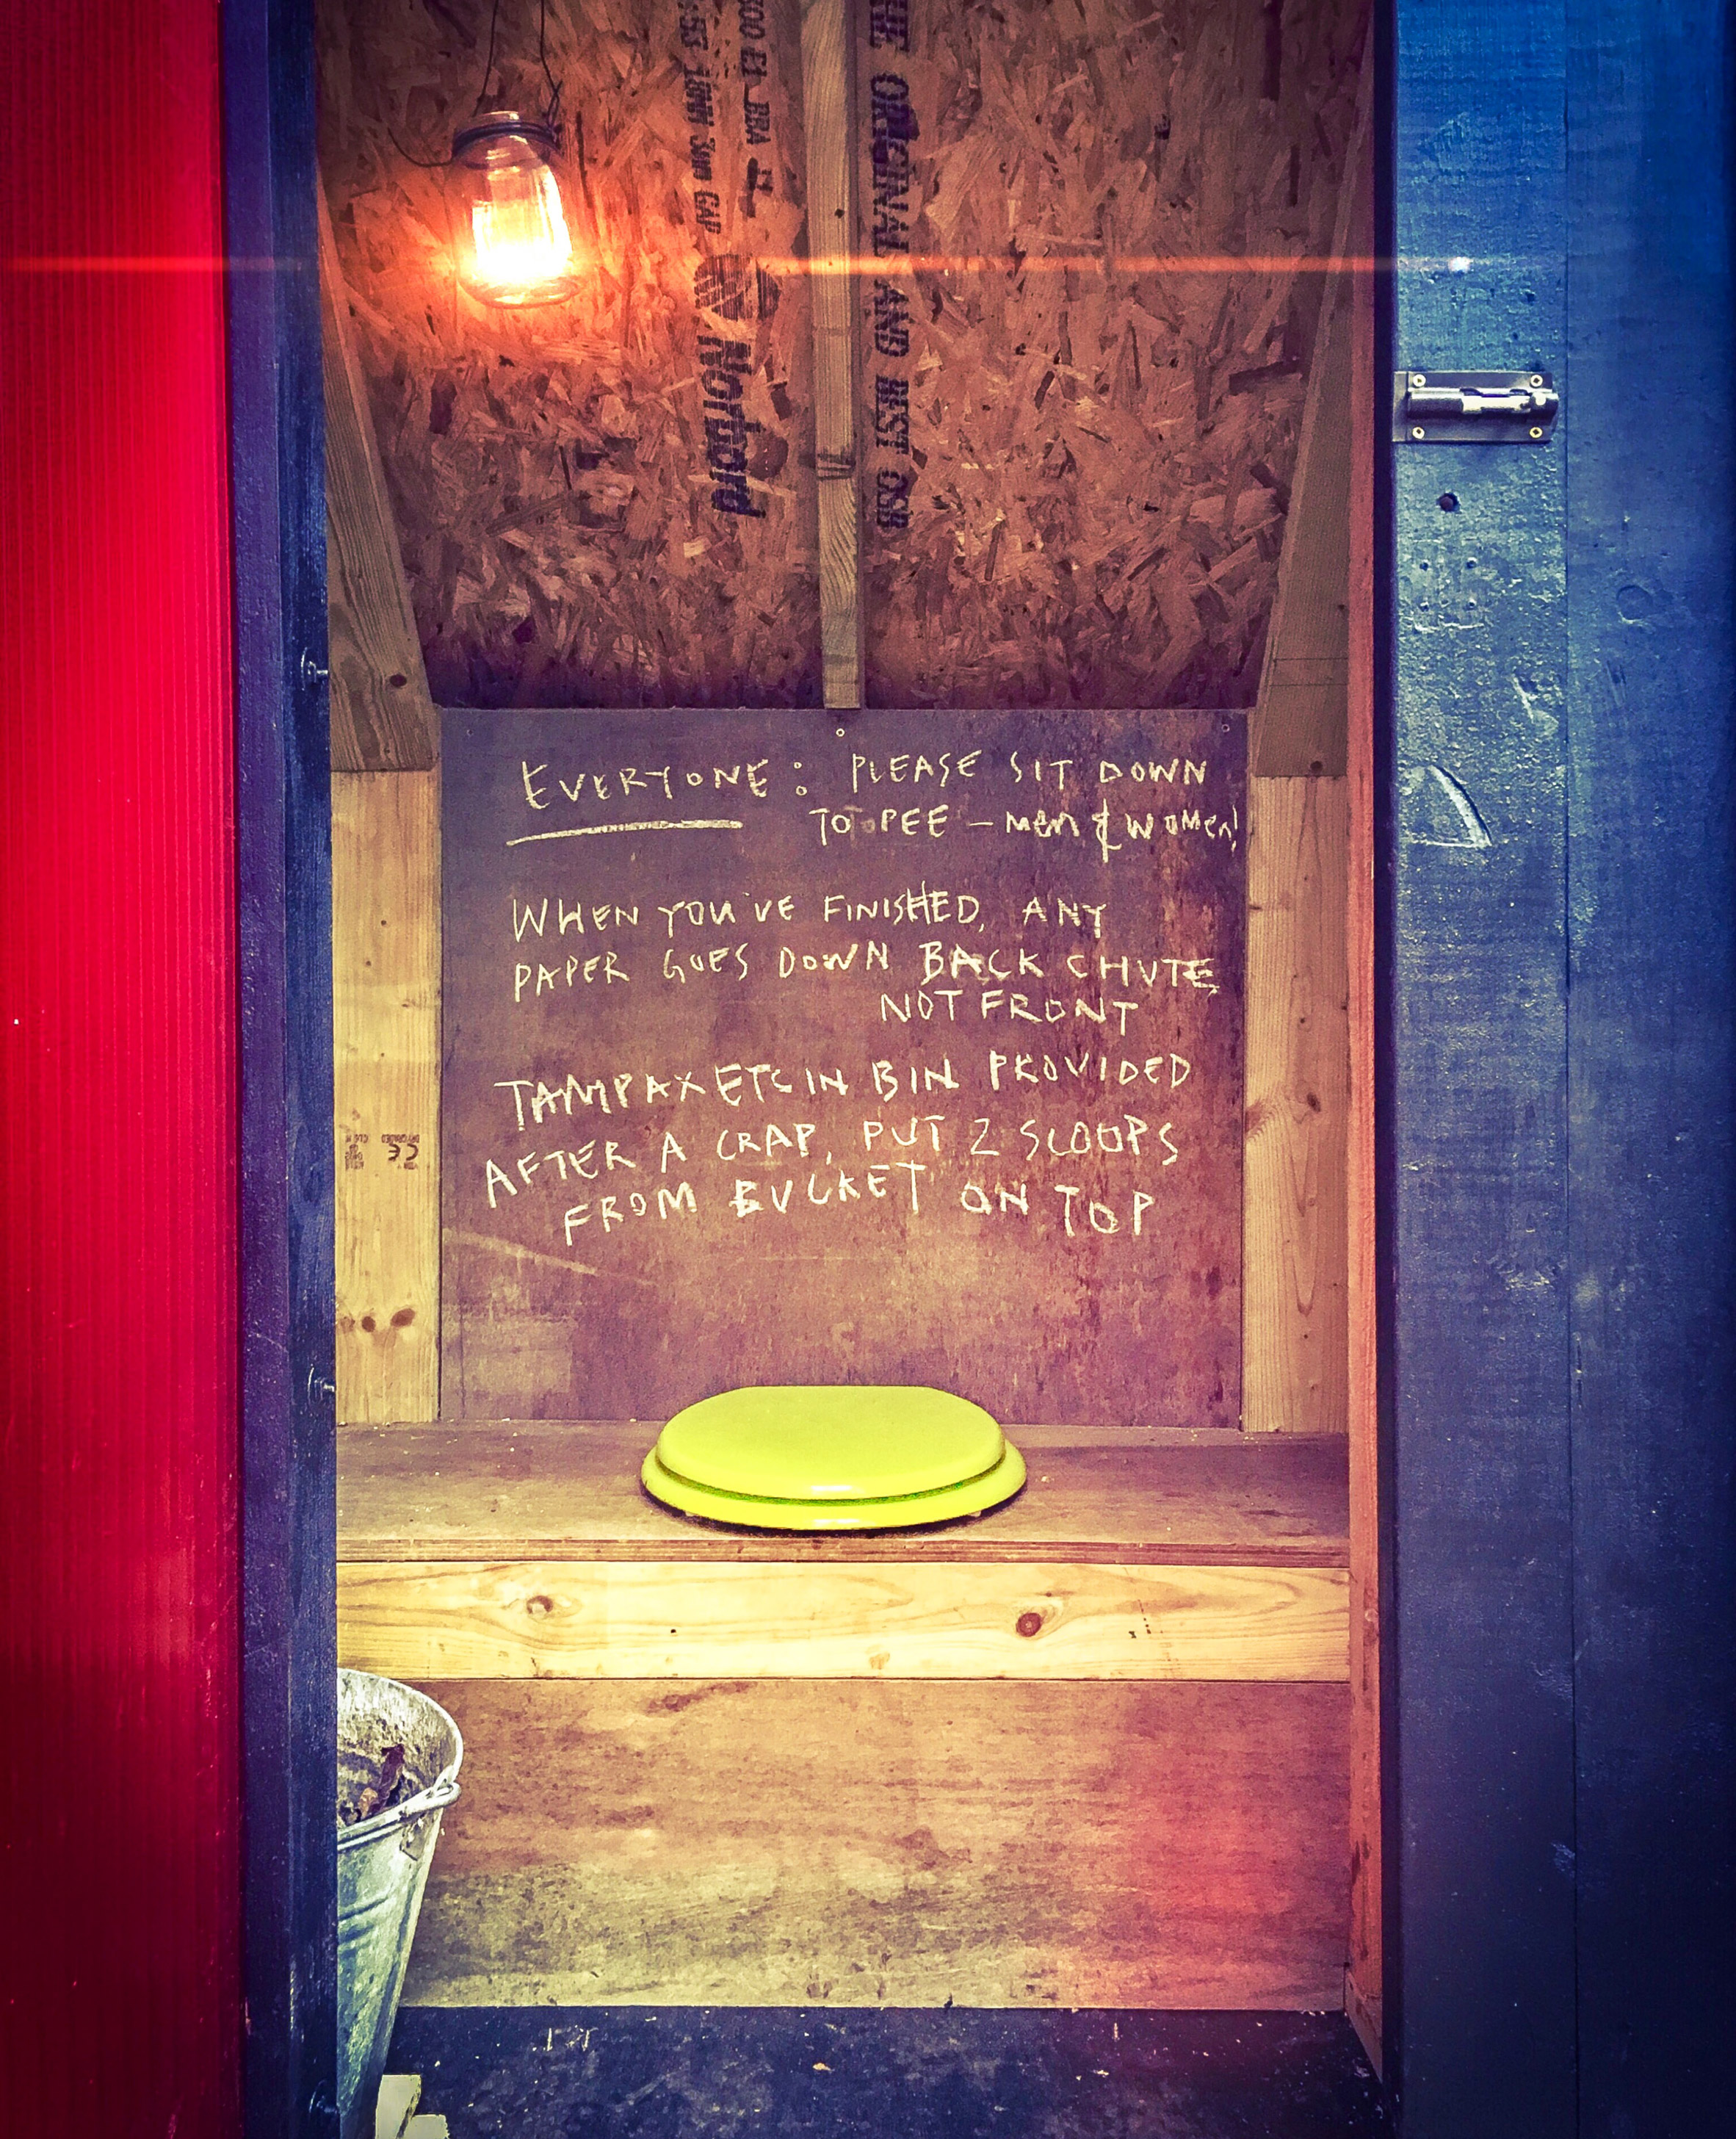 THE ORIGINAL AND BEST OSB
18MM 3mm GAP
Norbord
EVERYONE: PLEASE SIT DOWN
TO PEE – MEN & WOMEN!
WHEN YOU'VE FINISHED, ANY
PAPER GOES DOWN BACK CHUTE,
NOT FRONT
TAMPAX ETC IN BIN PROVIDED
AFTER A CRAP, PUT 2 SCOOPS
FROM BUCKET ON TOP
CE
DRY GRADED